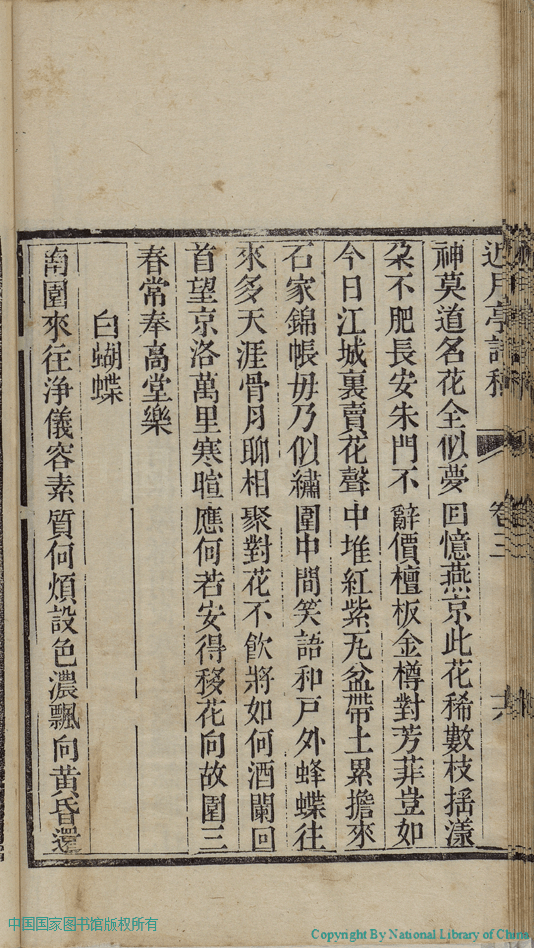 近月亭詩稿 卷三 十六
神莫道名花全似夢回憶燕京此花稀數枝揺漾
朶不肥長安朱門不辭價檀板金樽對芳菲豈如
今日江城裏賣花聲中堆紅紫瓦盆帶土累擔來
石家錦帳毋乃似繡圍中間笑語和戸外蜂蝶往
來多天涯骨月聊相聚對花不飮將如何酒闌回
首望京洛萬里寒暄應何若安得移花向故園三
春常奉高堂樂
白蝴蝶
南園來往浄儀容素質何煩設色濃飄向黃昏還
中国国家图书馆版权所有
Copyright By National Library of China